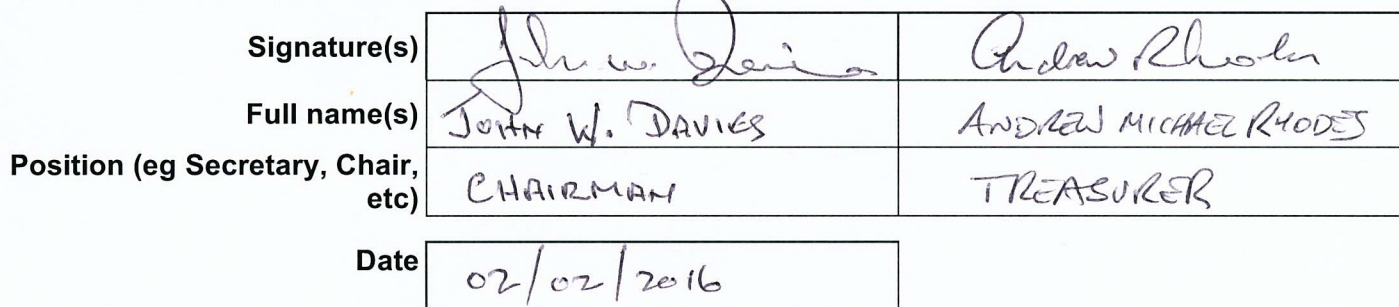 Signature(s) John W. Davies Andrew Rhodes
Full name(s) JOHN W. DAVIES ANDREW MICHAEL RHODES
Position (eg Secretary, Chair,
etc) CHAIRMAN TREASURER
Date 02/02/2016